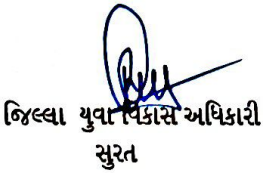 જિલ્લા યુવા વિકાસ અધિકારી
સુરત